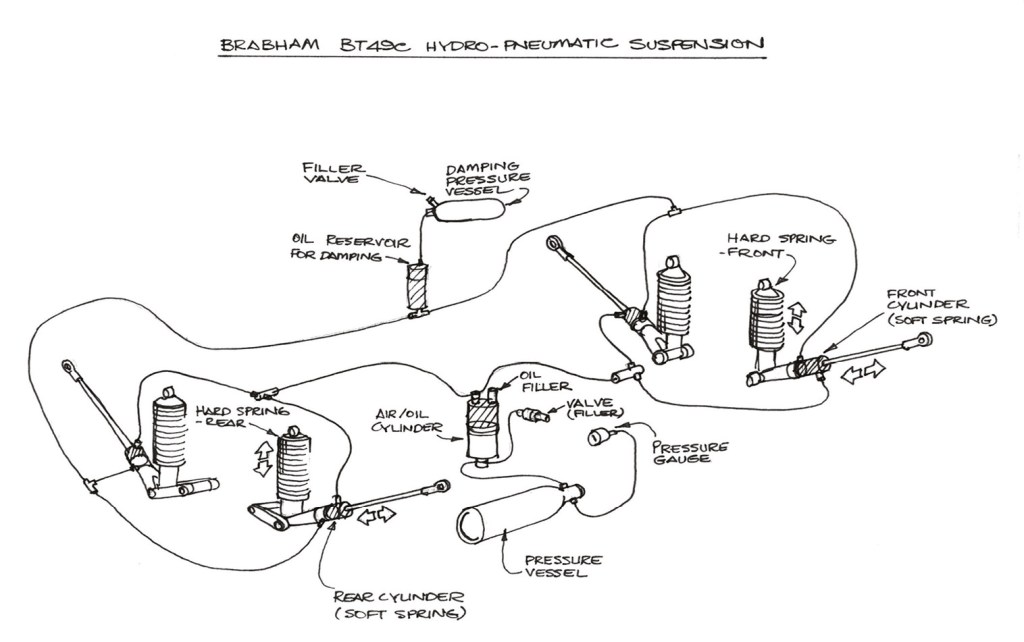 BRABHAM BT49C HYDRO-PNEUMATIC SUSPENSION
FILLER
VALVE
DAMPING
PRESSURE
VESSEL
OIL RESERVOIR
FOR DAMPING
HARD SPRING
-FRONT
FRONT
CYLINDER
(SOFT SPRING)
OIL
FILLER
VALVE
(FILLER)
AIR/OIL
CYLINDER
HARD SPRING
-REAR
PRESSURE
GAUGE
PRESSURE
VESSEL
REAR CYLINDER
(SOFT SPRING)